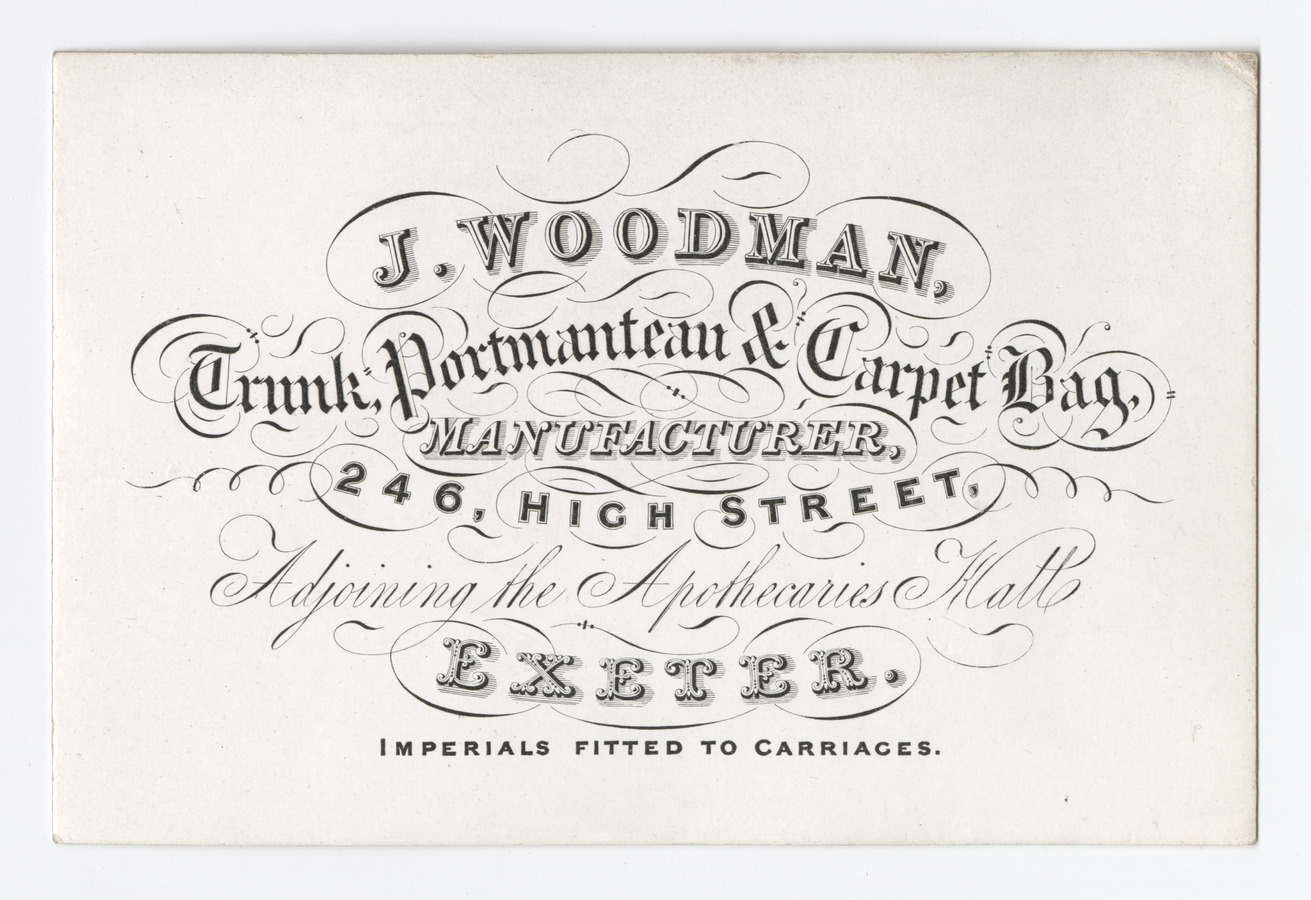 J. WOODMAN,
Trunk, Portmanteau & Carpet Bag,
MANUFACTURER,
246, HIGH STREET,
Adjoining the Apothecaries Hall
EXETER.
IMPERIALS FITTED TO CARRIAGES.